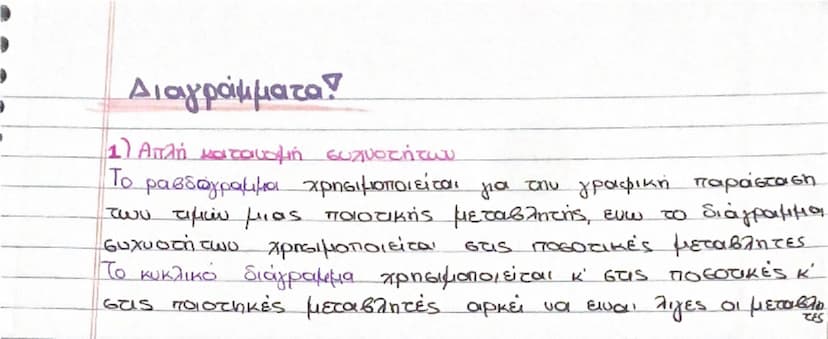 Διαγράμματα!
1) Απλή κατανομή συχνοτήτων
Το ραβδόγραμμα χρησιμοποιείται για την γραφική παράσταση
των τιμών μιας ποιοτικής μεταβλητής, ενω το διάγραμμα
συχνοτήτων χρησιμοποιείται στις ποσοτικές μεταβλητες
Το κυκλικό διάγραμμα χρησιμοποιείται κ' στις ποσοτικές κ'
στις ποιοτηκές μεταβλητές αρκεί να ειναι λιγες οι μεταβλη
τες